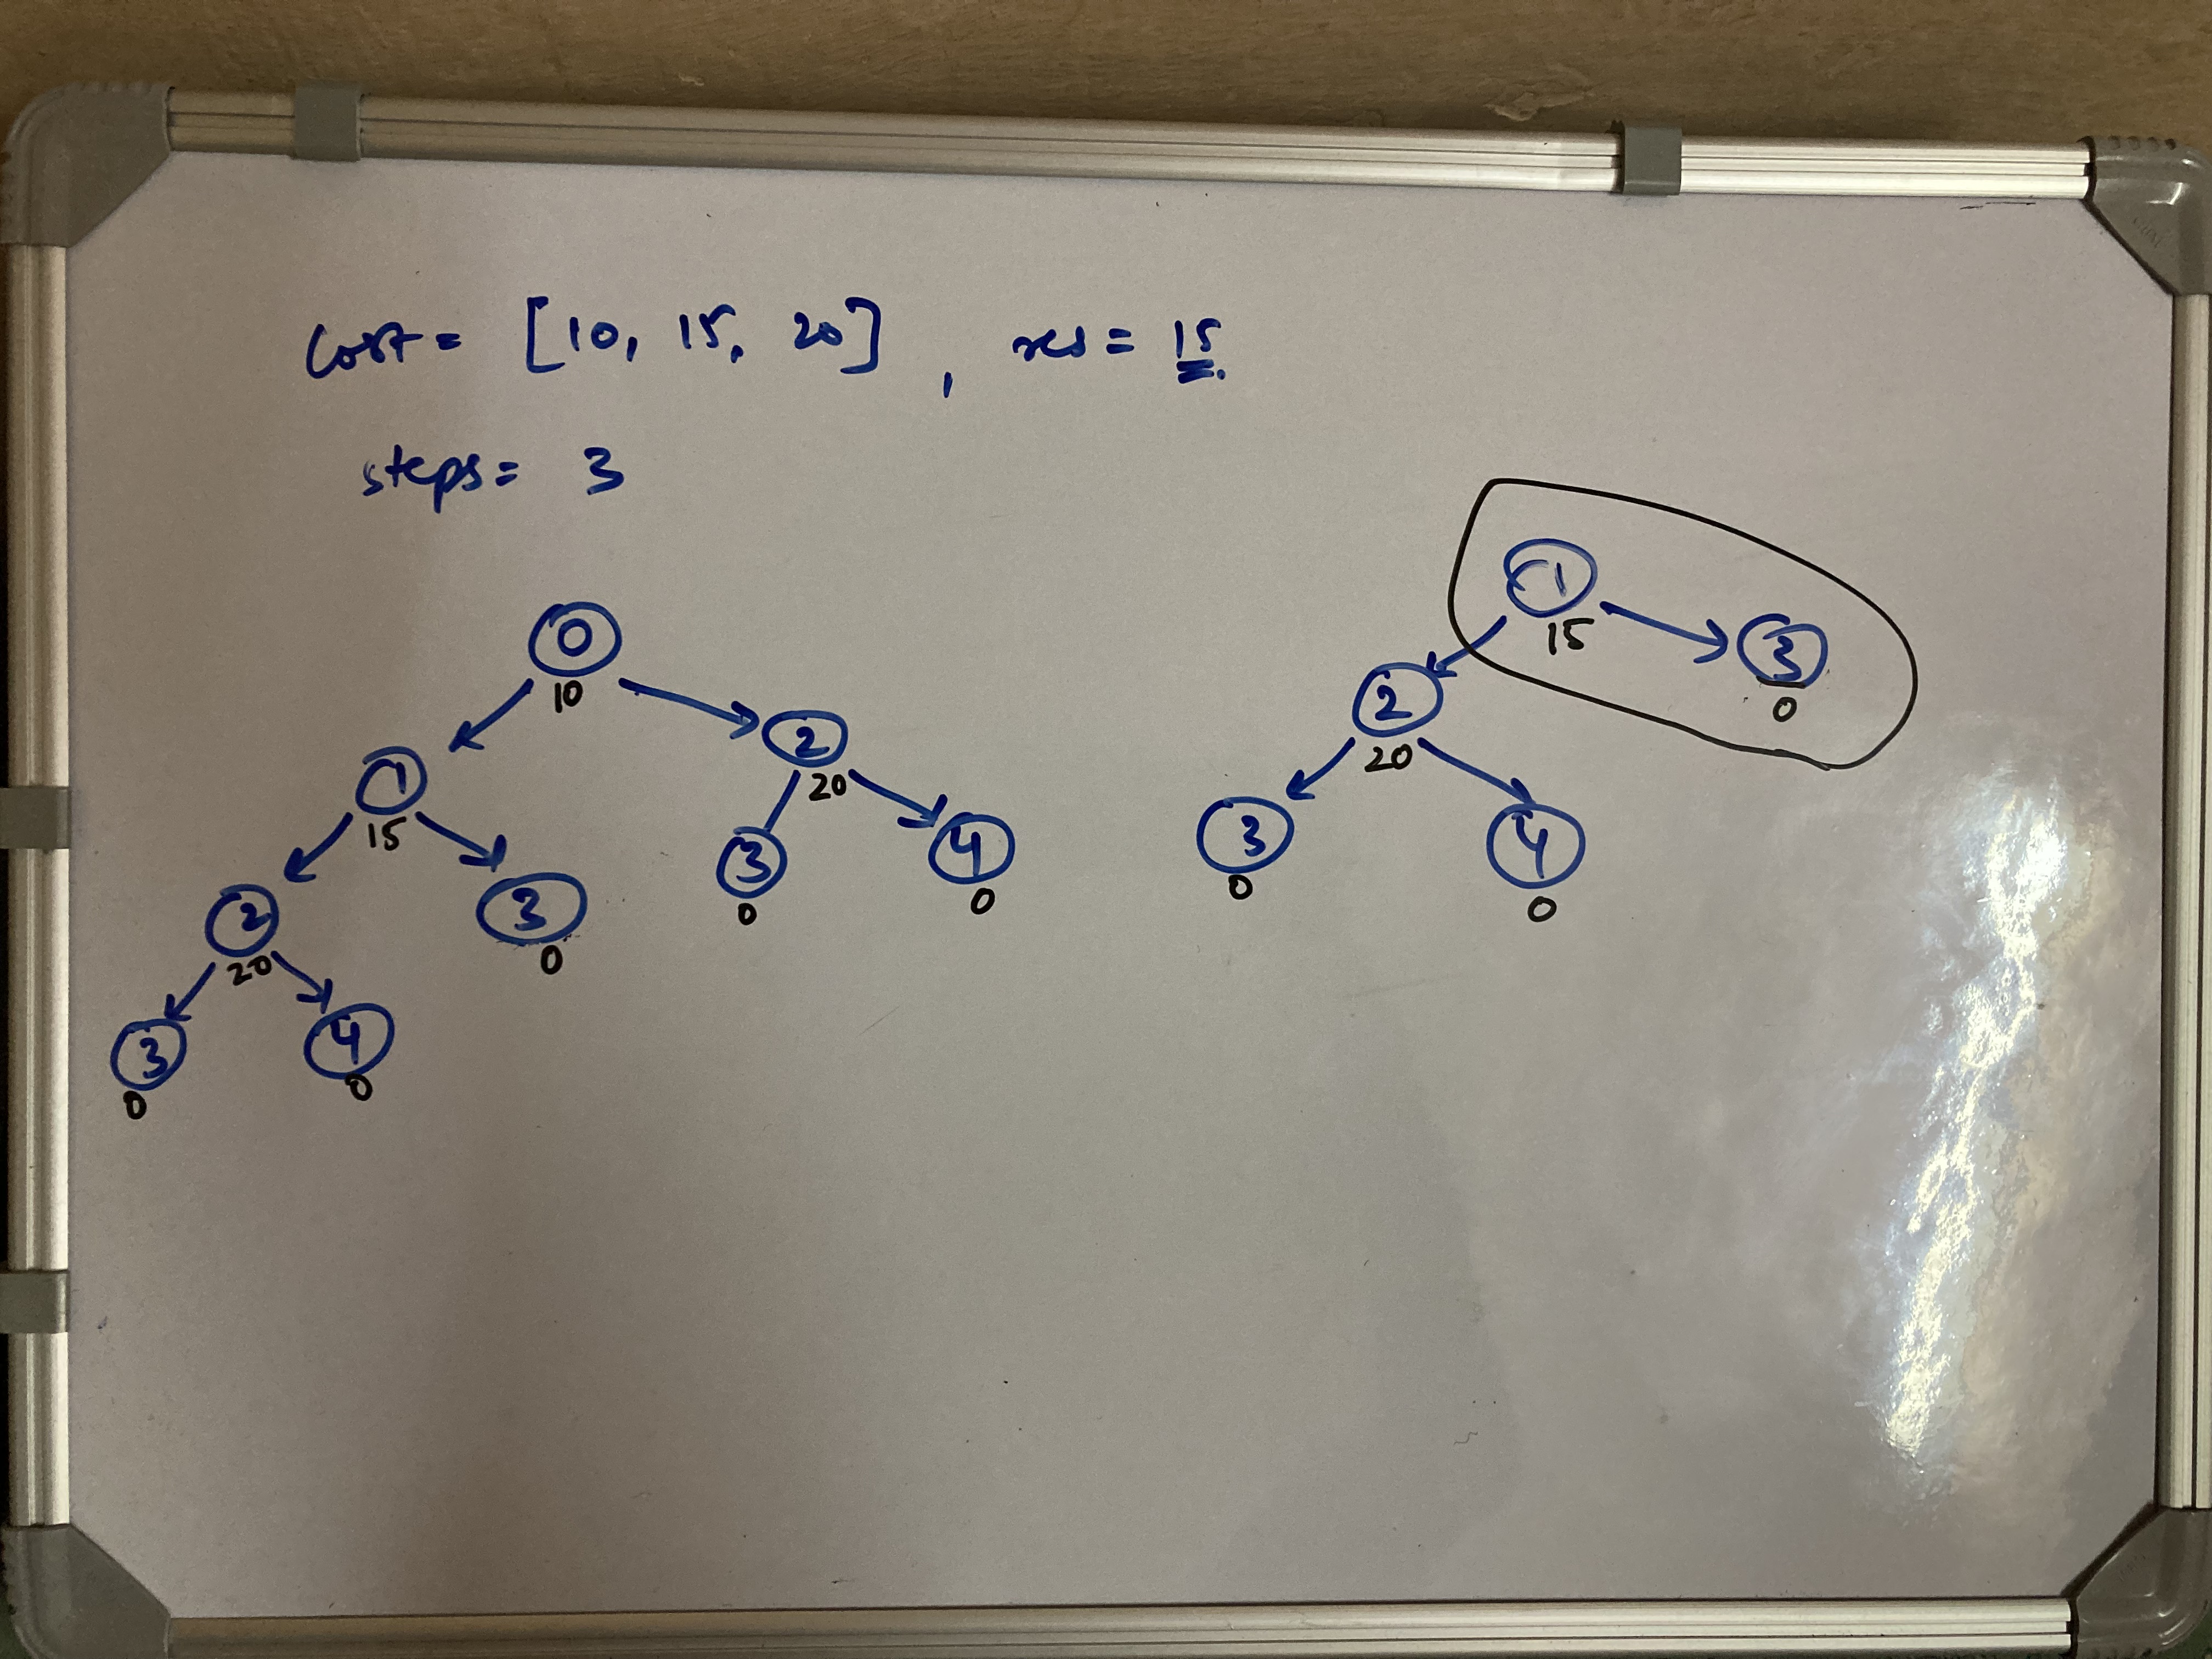 cost = [10, 15, 20] , res = 15.
steps = 3
0
10
1
15
2
20
3
0
4
0
3
0
2
20
3
0
4
0
1
15
2
20
3
0
4
0
3
0